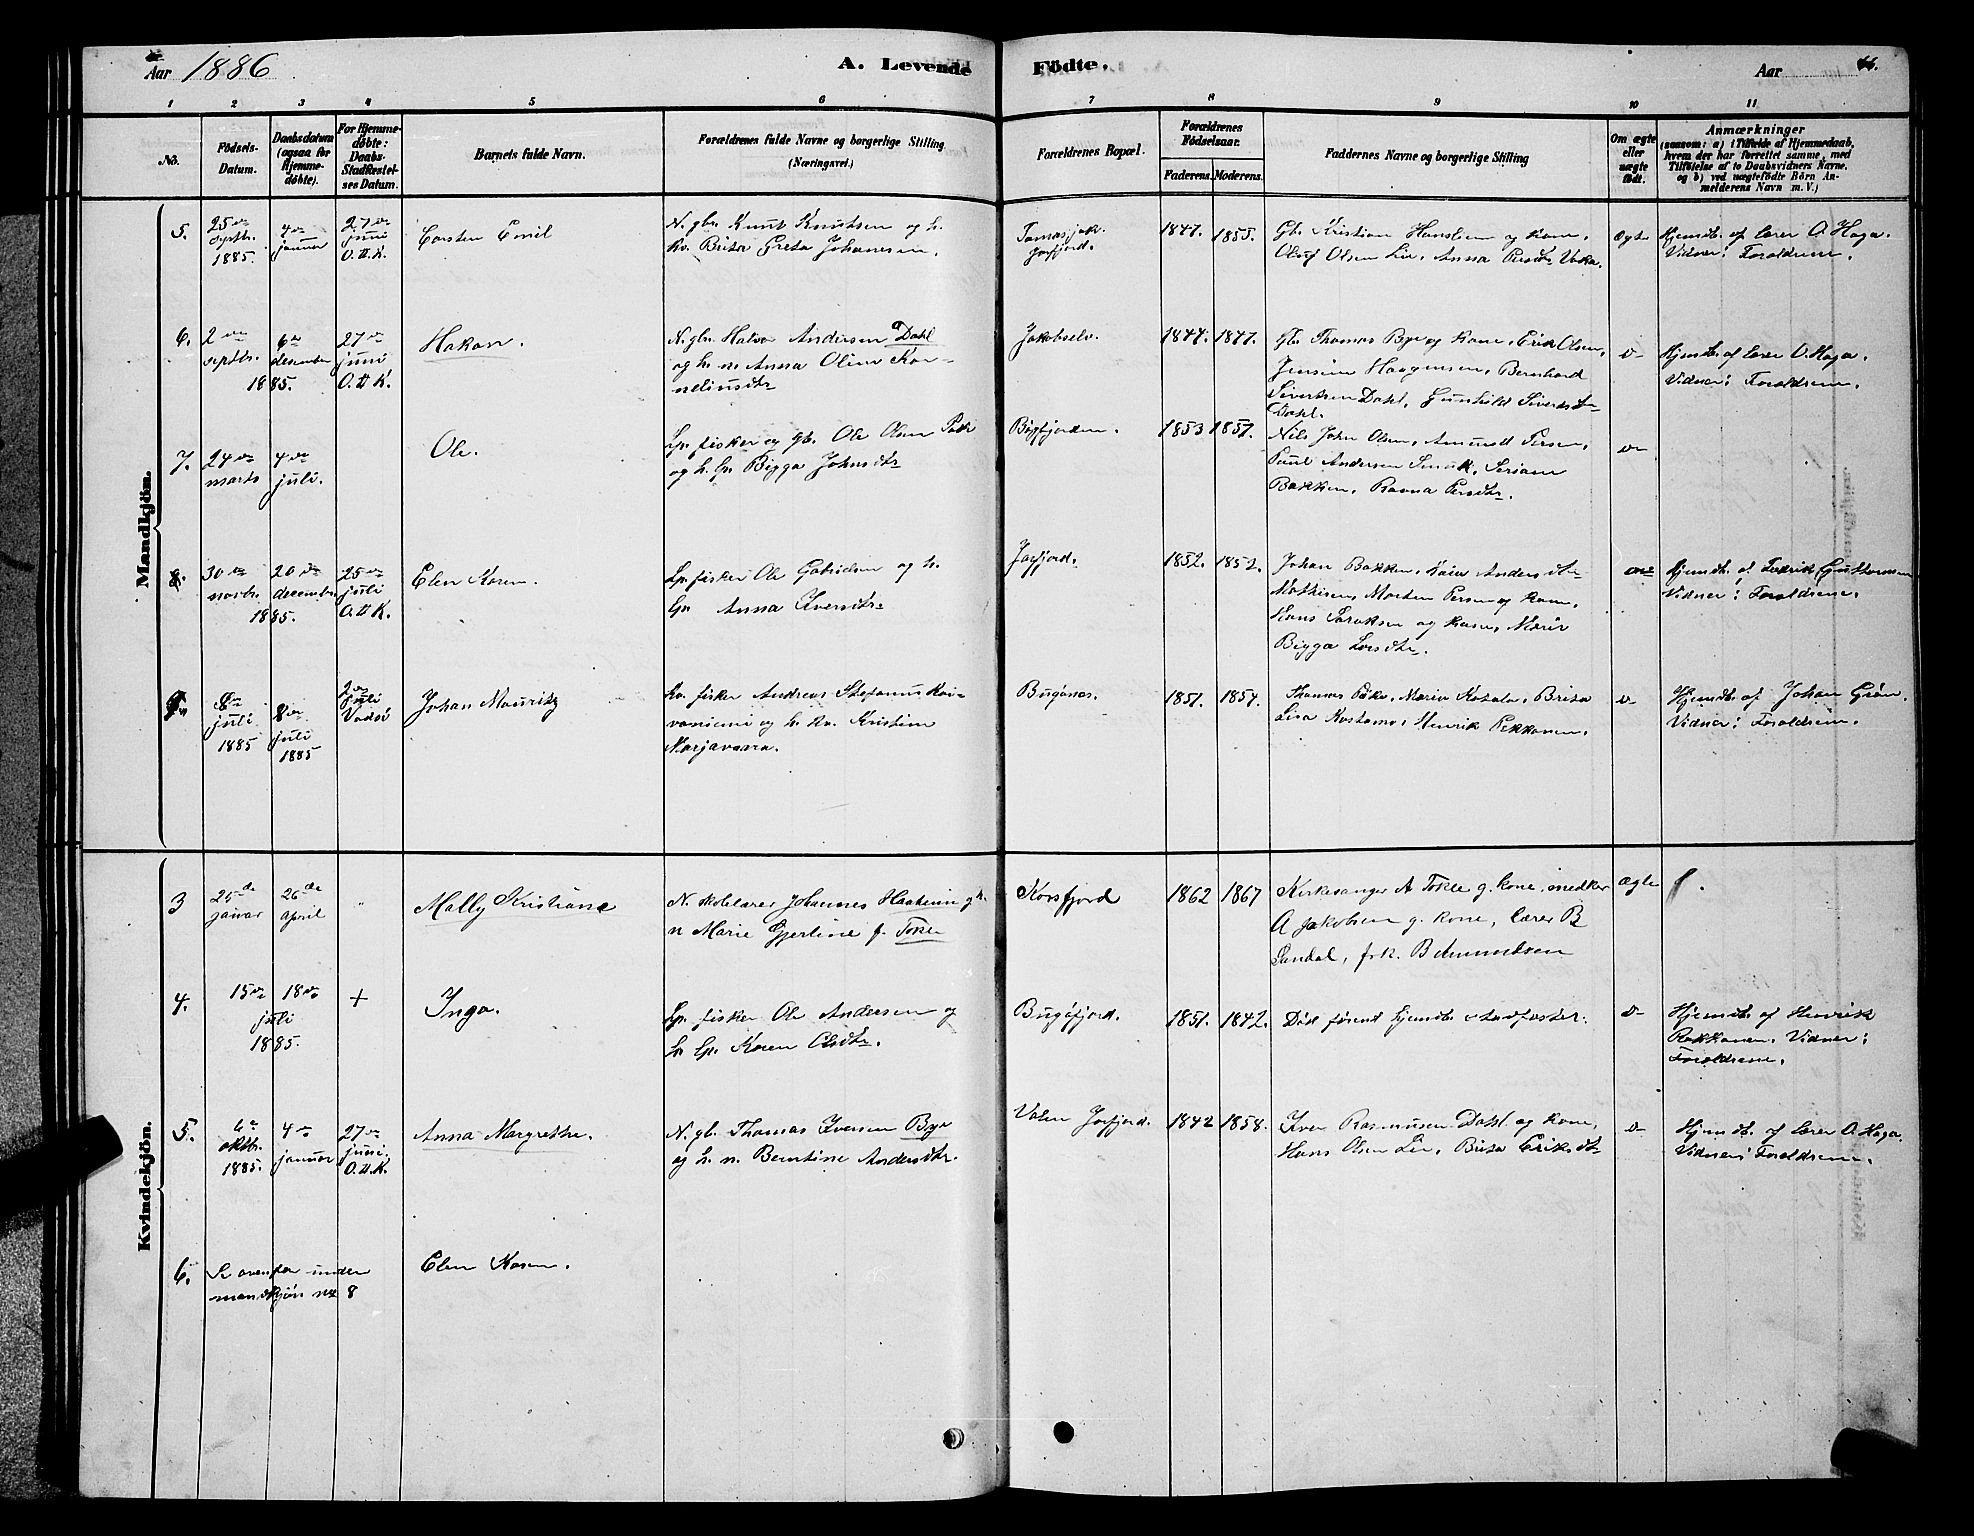 Aar 1886 A. Levende Födte. Aar 44.
1 2 3 4 5 6 7 8 9 10 11
No.
Födsels-Datum.
Daabsdatum (ogsaa for Hjemme-döbte).
For Hjemme-döbte: Daabs-Stadfæstel-ses Datum.
Barnets fulde Navn.
Forældrenes fulde Navne og borgerlige Stilling
(Næringsvei.)
Forældrenes Bopæl.
Forældrenes Födselsaar.
Faderens. Moderens.
Faddernes Navne og borgerlige Stilling
Om ægte eller uægte födt.
Anmærkninger
(saasom: a) i Tilfælde af Hjemmedaab,
hvem der har forrettet samme, med
Tilföielse af to Daabsvidners Navne,
og b) ved uægtefödte Börn An-
melderens Navn m. V.)
Mandkjön.
5. 25de septbr. 1885. 4de januar 27de juni O.d.K.
Carsten Emil
N. gbr. Knut Knutsen og h.
kv. Brita Greta Johansen.
Tomasjok. Jarfjord.
1847. 1855.
Gb. Kristian Hanslien og kone,
Oluf Olsen Lie, Anna Persdtr Vaka.
Ægte
Hjemdb. af lærer O. Haga.
Vidner: Forældrene.
6. 2den septbr. 6te desember 1885. 27de juni O.d.K.
Hakon.
N. gbr. Halvor Andersen Dahl
og h. n. Anna Oline Kor-
neliusdtr
Jakobselv.
1844. 1847.
Gb. Thomas Bye og kone, Erik Olsen,
Jensine Haagensen, Bernhard
Sivertsen Dahl, Gunhild Sivertsdtr
Dahl.
do
Hjemdb. af lærer O. Haga.
Vidner: Forældrene.
7. 24de marts 4de juli.
Ole.
Lp. fisker og gb. Ole Olsen
og h. lp. Bigga Johnsdtr
Bøgfjorden.
1853 1851.
Nils John Olsen, Amund Persen,
Poul Andersen Smuk, Seriane
Bakken, Ravna Persdtr.
do
8. 30de novbr. 20de decembr. 1885. 25de juli O.d.K.
Elen Karen.
Lp. fisker Ole Gabrielsen og h.
lp. Anna Iversdtr
Jarfjord.
1852. 1852.
Johan Bakken, Kaie Andersdtr
Mathisen, Morten Persen og kone,
Hans Saraksen og kone, Marit
Bigga Larsdtr.
Hjemdb. af Fredrik Guttormsen
Vidner: Forældrene.
9. 8de juli 1885 8de juli 1885 2den juli Vadsö
Johan Mauritz
kv. fisker Andreas Stefanus Koi-
vaniemi og h. kv. Kristine
Marjavaara.
Bugønes.
1851. 1854.
Thomas Pika, Maria Katala, Brita
Lisa Kostamo, Henrik Pekkanen.
do
Hjemdb. af Johan Grön.
Vidner: Forældrene.
Kvindekjön.
3 25de januar 26de april "
Mally Kristiane
N. skolelærer Johannes Haaheim g. h.
n Marie Gjertine f. Tokle
Korsfjord
1862 1867
Kirkesanger A Tokle g. kone, medhj.
A Jakobsen g. kone, lærer B
Sandal, frk. B Ammundsen
Ægte
4. 15de 18de juli 1885. +
Inga.
Lp. fisker Ole Andersen og
h. lp. Karen Olsdtr.
Bugöfjord.
1851. 1842.
Död förend hjemdb. stadfæstet.
do
Hjemdb. af Henrik
Rakkanen. Vidner:
Forældrene.
5. 6te oktbr. 1885. 4de januar 27de juni, O.d.K.
Anna Margrethe.
N. gb. Thomas Iversen Bye
og h. n. Berntine Andersdtr.
Valen Jarfjord.
1842 1858.
Iver Rasmussen Dahl og kone,
Hans Olsen Lie, Brita Eriksdtr
do
Hjemdb. af lærer O. Haga.
Vidner: Forældrene.
6. Se ovenfor under
mandkjön no 8
Elen Karen.